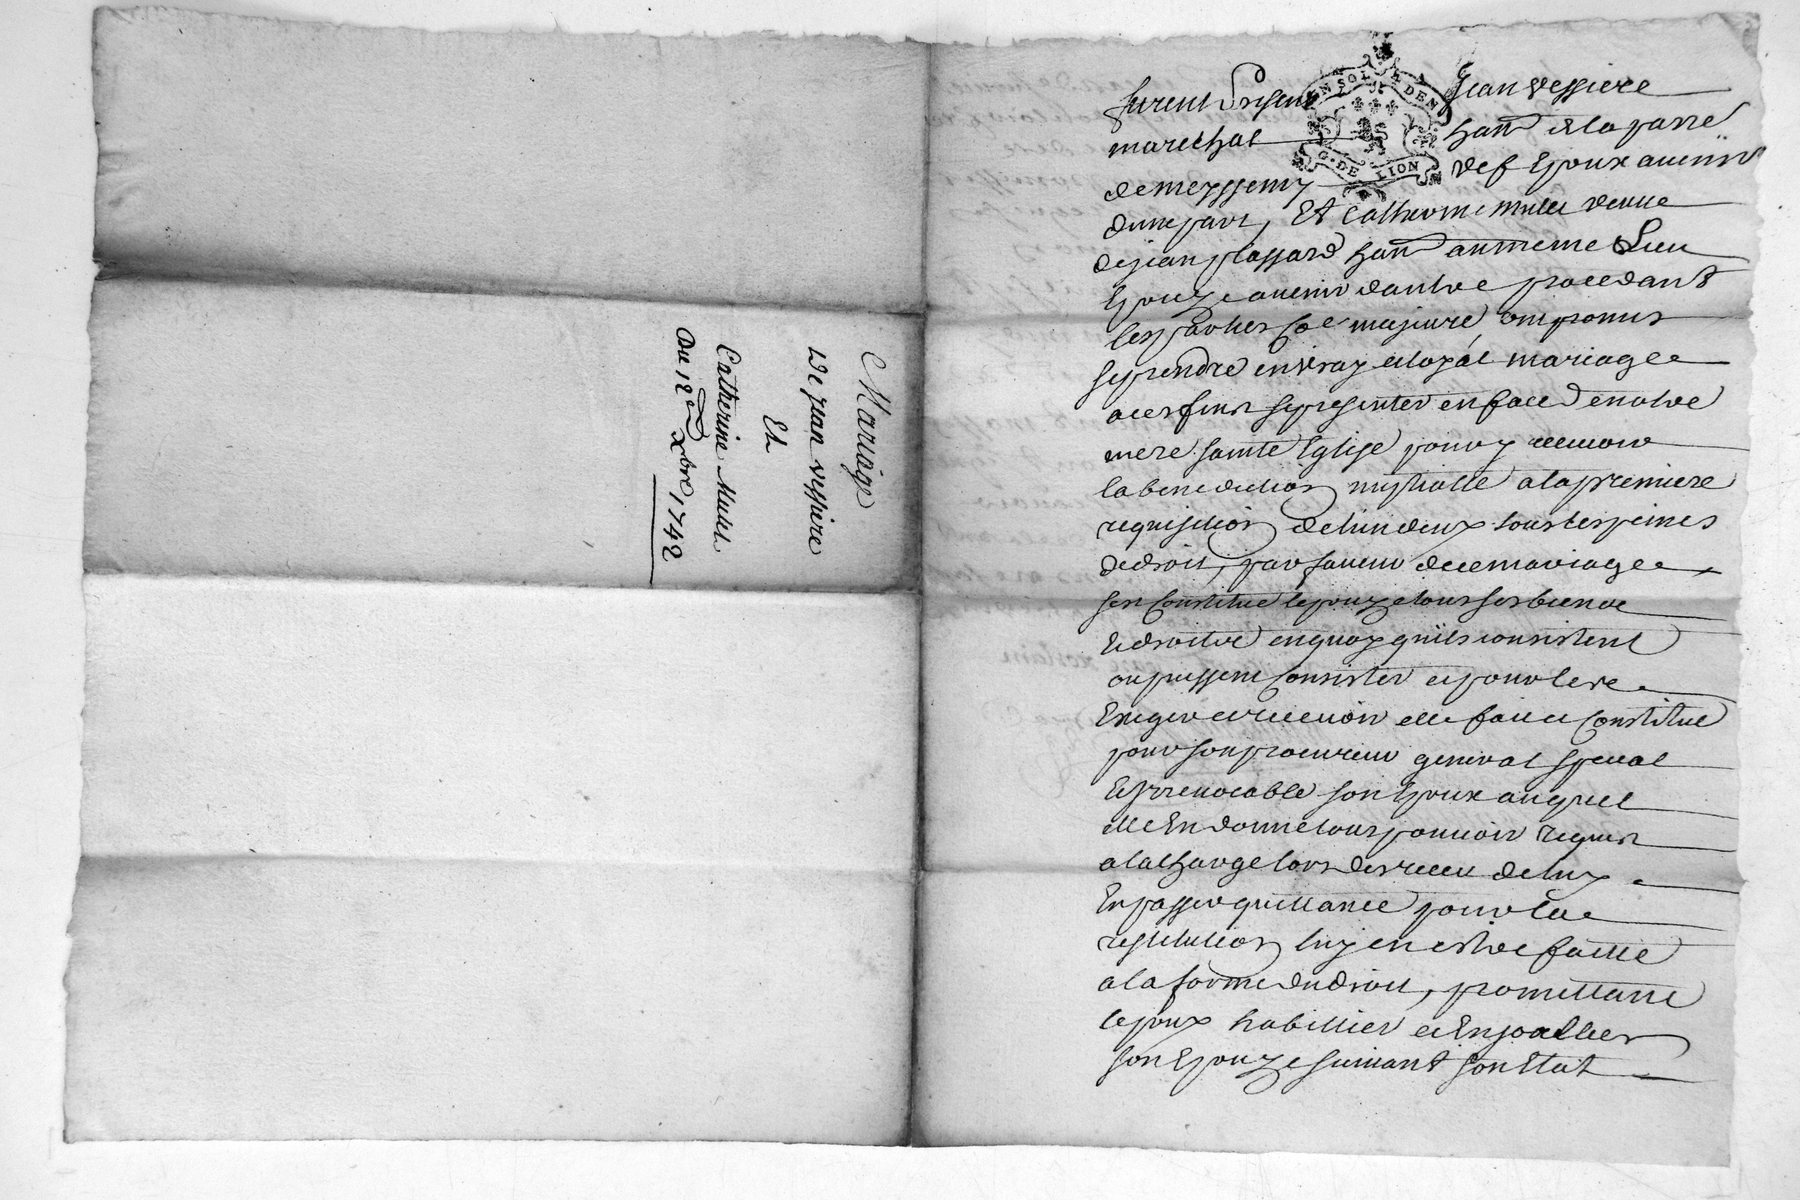 Mariage
De jean vessiere
Et
Catherine Mulet
Du 12e Xbre, 1742
UN SOL 4 DEN
G. DE LION
furent presens Jean vessiere
marechal habt de la parre
de meyssemy def Epoux avenir
dune part, Et Catherine Mulet veuve
de jean plassard habt au meme Lieu
Epouze avenir dautre procedant
les parties Coe majeure, ont promis
se prendre en vray et loyal mariage
a ces fins se presenter en face de notre
mere sainte Eglise pour y recevoir
la benediction nuptialle a la premiere
requisition de lun deux sous les peines
de droit, par faveur de ce mariage
sest Constitué lepouze tous ses biens
Et droits en quoy quils consistent
ou puissent Consister et pour les
Exiger et recevoir elle fait et Constitue
pour son procureur general special
Et Irrevocable son Epoux auquel
elle En donne tous pouvoir requis
a la charge lors des receu de luy
En passer quittance pour la
restitution luy en estre faitte
a la forme du droit, promettant
lepoux habillier et Enjoallier
son Epouze suivant son Etat